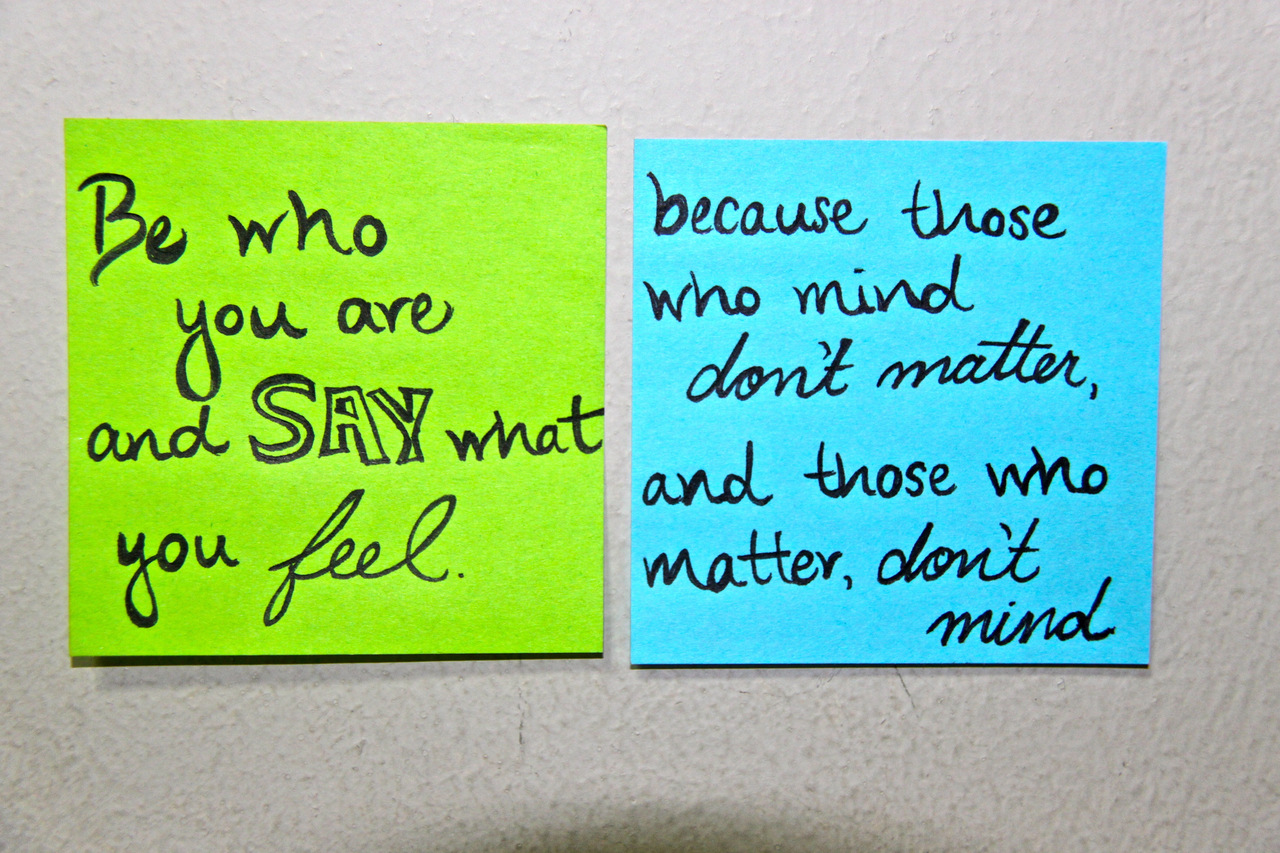 Be who
you are
and SAY what
you feel.
because those
who mind
don't matter,
and those who
matter, don't
mind